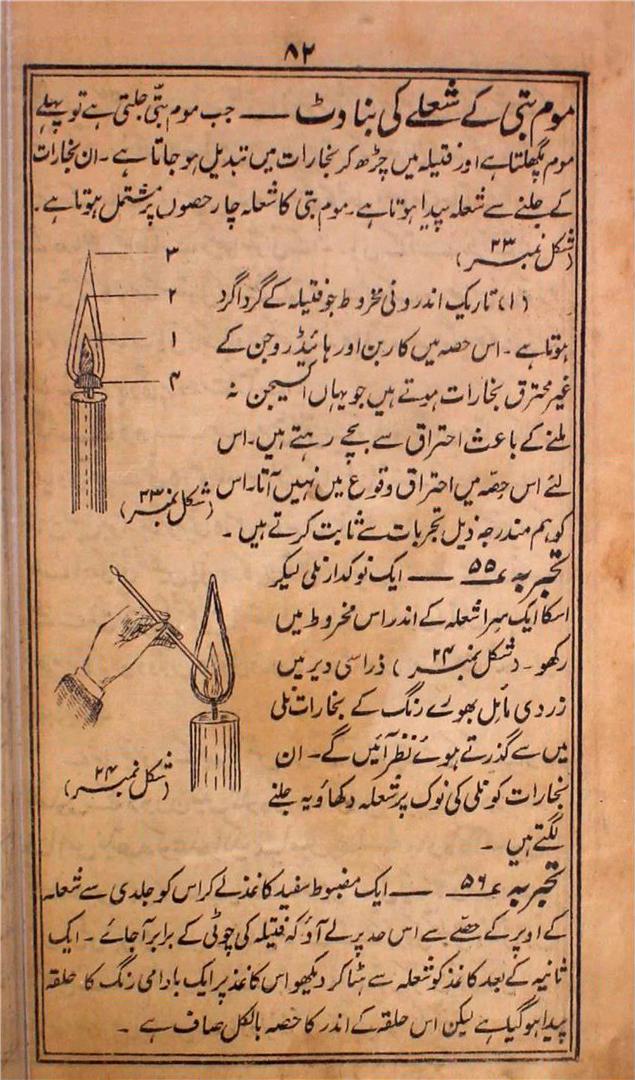 ۸۲
موم بتی کے شعلے کی بناوٹ — جب موم بتّی جلتی ہے تو پہلے
موم پگھلتا ہے اور فتیلہ میں چڑھ کر بخارات میں تبدیل ہو جاتا ہے۔ ان بخارات
کے جلنے سے شعلہ پیدا ہوتا ہے۔ موم بتی کا شعلہ چار حصوں پر مشتمل ہوتا ہے۔
(شکل نمبر ۲۳)
۳
۲
۱
۴
(۱) تاریک اندرونی مخروط جو فتیلہ کے گرداگرد
ہوتا ہے۔ اس حصہ میں کاربن اور ہائیڈروجن کے
غیر محترق بخارات ہوتے ہیں جو یہاں آکسیجن نہ
ملنے کے باعث احتراق سے بچے رہتے ہیں۔ اس
لئے اس حصّہ میں احتراق وقوع میں نہیں آتا۔ اس
(شکل نمبر ۲۳)
کو ہم مندرجہ ذیل تجربات سے ثابت کرتے ہیں۔
تجربہ ۵۵ — ایک نوکدار نلی لیکر
اسکا ایک سرا شعلہ کے اندر اس مخروط میں
رکھو۔ (شکل نمبر ۲۴) ذرا سی دیر میں
زردی مائل بھورے رنگ کے بخارات نلی
میں سے گذرتے ہوئے نظر آئیں گے۔ ان
(شکل نمبر ۲۴)
بخارات کو نلی کی نوک پر شعلہ دکھاؤ یہ جلنے
لگتے ہیں۔
تجربہ ۵۶ — ایک مضبوط سفید کاغذ لے کر اس کو جلدی سے شعلہ
کے اوپر کے حصّے سے اس حد پر لے آؤ کہ فتیلہ کی چوٹی کے برابر آجائے۔ ایک
ثانیہ کے بعد کاغذ کو شعلہ سے ہٹا کر دیکھو اس کاغذ پر ایک بادامی رنگ کا حلقہ
پیدا ہوگیا ہے لیکن اس حلقہ کے اندر کا حصہ بالکل صاف ہے۔